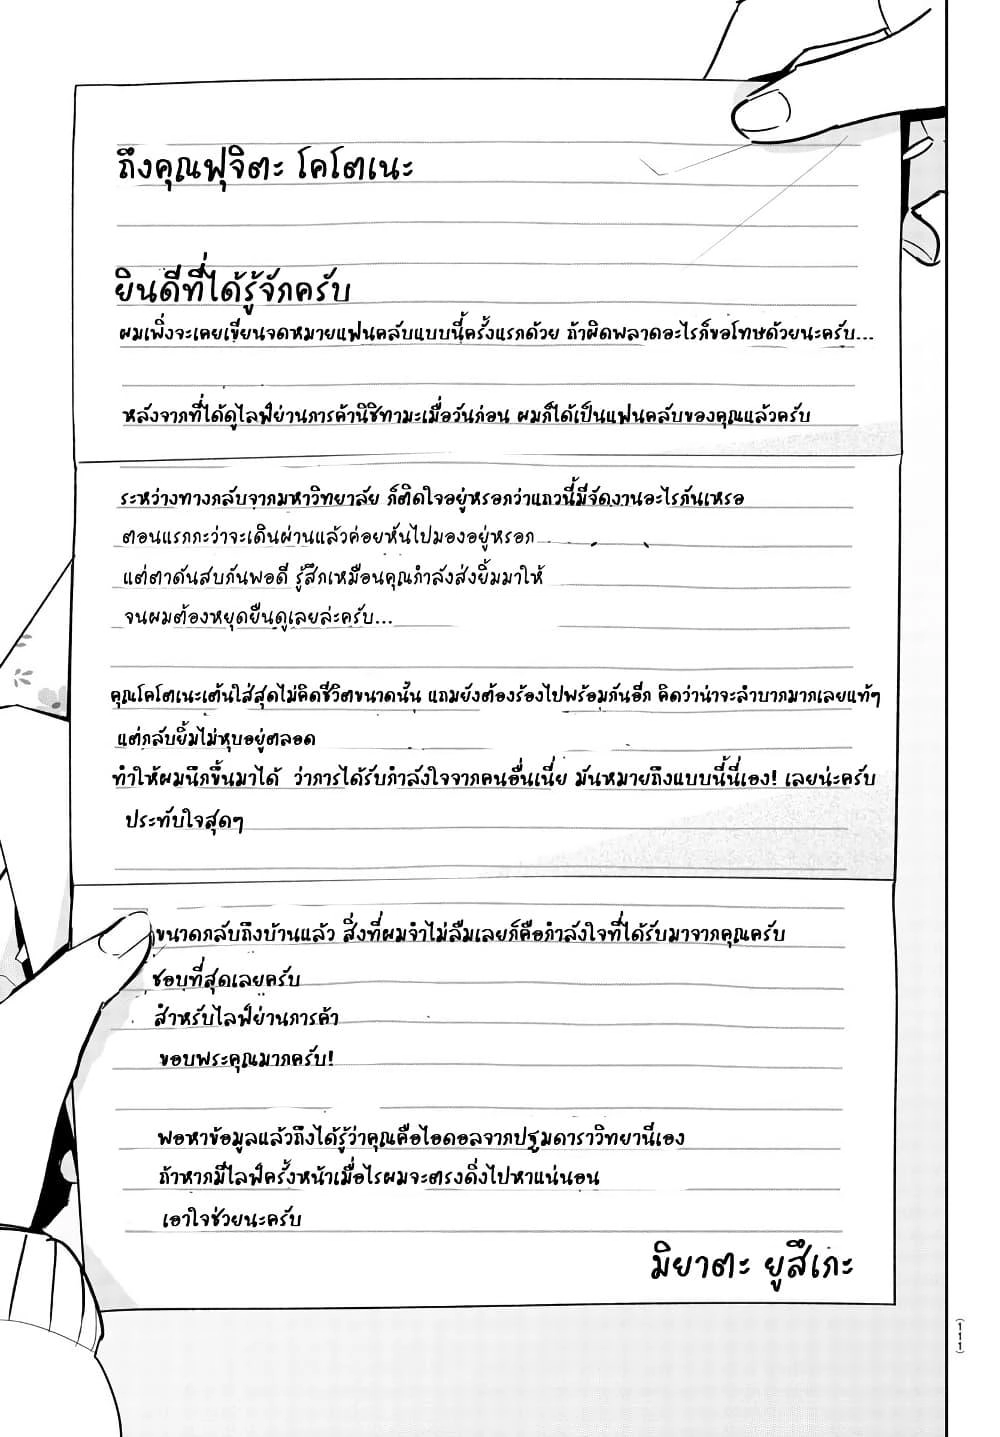 ถึงคุณฟุจิตะ โคโตเนะ
ยินดีที่ได้รู้จักครับ
ผมเพิ่งจะเคยเขียนจดหมายแฟนคลับแบบนี้ครั้งแรกด้วย ถ้าผิดพลาดอะไรก็ขอโทษด้วยนะครับ...
หลังจากที่ได้ดูไลฟ์ย่านการค้านิชิทามะเมื่อวันก่อน ผมก็ได้เป็นแฟนคลับของคุณแล้วครับ
ระหว่างทางกลับจากมหาวิทยาลัย ก็ติดใจอยู่หรอกว่าแถวนี้มีจัดงานอะไรกันเหรอ
ตอนแรกกะว่าจะเดินผ่านแล้วค่อยหันไปมองอยู่หรอก
แต่ตาดันสบกันพอดี รู้สึกเหมือนคุณกำลังส่งยิ้มมาให้
จนผมต้องหยุดยืนดูเลยล่ะครับ...
คุณโคโตเนะเต้นใส่สุดไม่คิดชีวิตขนาดนั้น แถมยังต้องร้องไปพร้อมกันอีก คิดว่าน่าจะลำบากมากเลยแท้ๆ
แต่กลับยิ้มไม่หุบอยู่ตลอด
ทำให้ผมนึกขึ้นมาได้ ว่าการได้รับกำลังใจจากคนอื่นเนี่ย มันหมายถึงแบบนี้นี่เอง! เลยน่ะครับ
ประทับใจสุดๆ
ขนาดกลับถึงบ้านแล้ว สิ่งที่ผมจำไม่ลืมเลยก็คือกำลังใจที่ได้รับมาจากคุณครับ
ชอบที่สุดเลยครับ
สำหรับไลฟ์ย่านการค้า
ขอบพระคุณมากครับ!
พอหาข้อมูลแล้วถึงได้รู้ว่าคุณคือไอดอลจากปฐมดาราวิทยานี่เอง
ถ้าหากมีไลฟ์ครั้งหน้าเมื่อไรผมจะตรงดิ่งไปหาแน่นอน
เอาใจช่วยนะครับ
มิยาตะ ยูสึเกะ
(111)